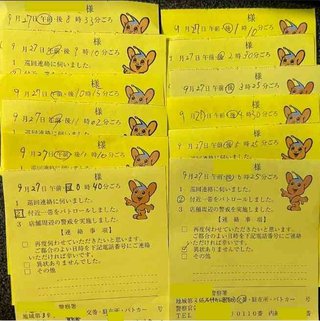 様
9月27日午前・後8時33分ごろ
様
9月27日午前・後9時10分ごろ
1 巡回連絡に伺いました。
様
9月27日午前・後10時15分ごろ
様
9月27日午前・後11時02分ごろ
様
9月27日午前・後0時10分ごろ
様
9月27日午前・後0時40分ごろ
1 巡回連絡に伺いました。
2 付近一帯をパトロールしました。
3 店舗周辺の警戒を実施しました。
【連絡事項】
□ 再度伺わせていただきたいと思います。
ご都合のよい日時を下記電話番号にご連絡
いただければ幸いです。
□ 異状ありませんでした。
□ その他
警察署
交番・駐在所・パトカー
様
9月27日午前・後1時10分ごろ
様
9月27日午前・後2時30分ごろ
1 巡回連絡に伺いました。
様
9月27日午前・後3時25分ごろ
様
9月27日午前・後4時30分ごろ
様
様
9月27日午前・後6時25分ごろ
1 巡回連絡に伺いました。
2 付近一帯をパトロールしました。
3 店舗周辺の警戒を実施しました。
【連絡事項】
□ 再度伺わせていただきたいと思います。
ご都合のよい日時を下記電話番号にご連絡
いただければ幸いです。
異状ありませんでした。
□ その他
警察署
交番・駐在所・パトカー
TEL
0110番